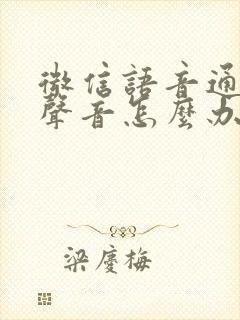 微信語音通
聲音怎麼办
梁慶梅